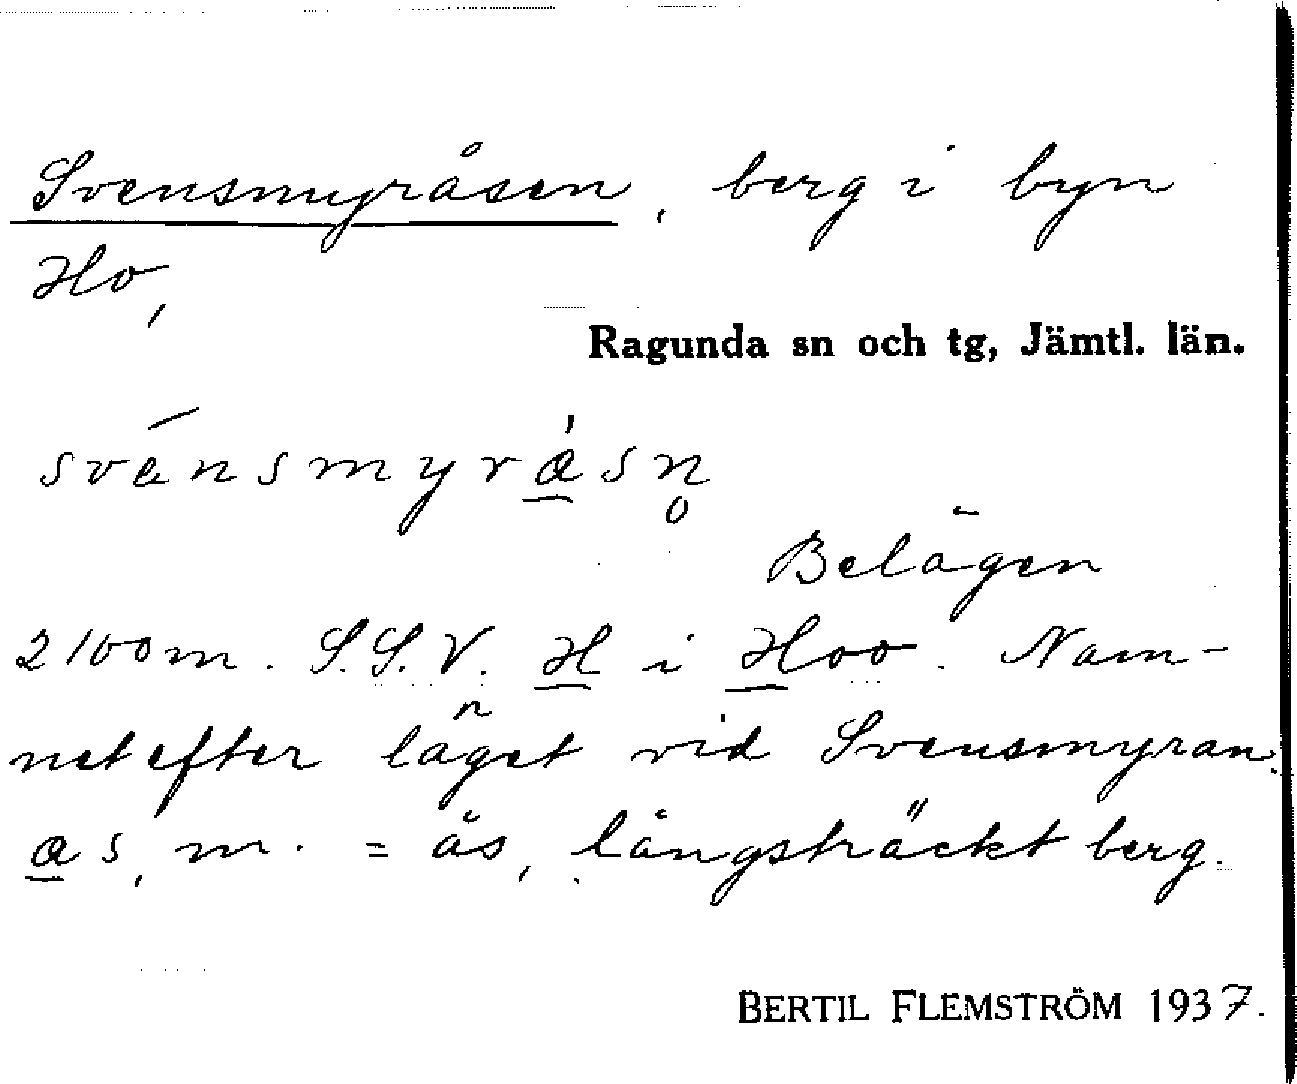 Svensmyråsen, berg i byn
Ho,
Ragunda sn och tg, Jämtl. län.
svénsmyrásn̥
Belägen
2100 m. S.S.V. H i Hoo. Nam-
net efter läget vid Svensmyran.
as, m. = ås, långsträckt berg.
BERTIL FLEMSTRÖM 1937.